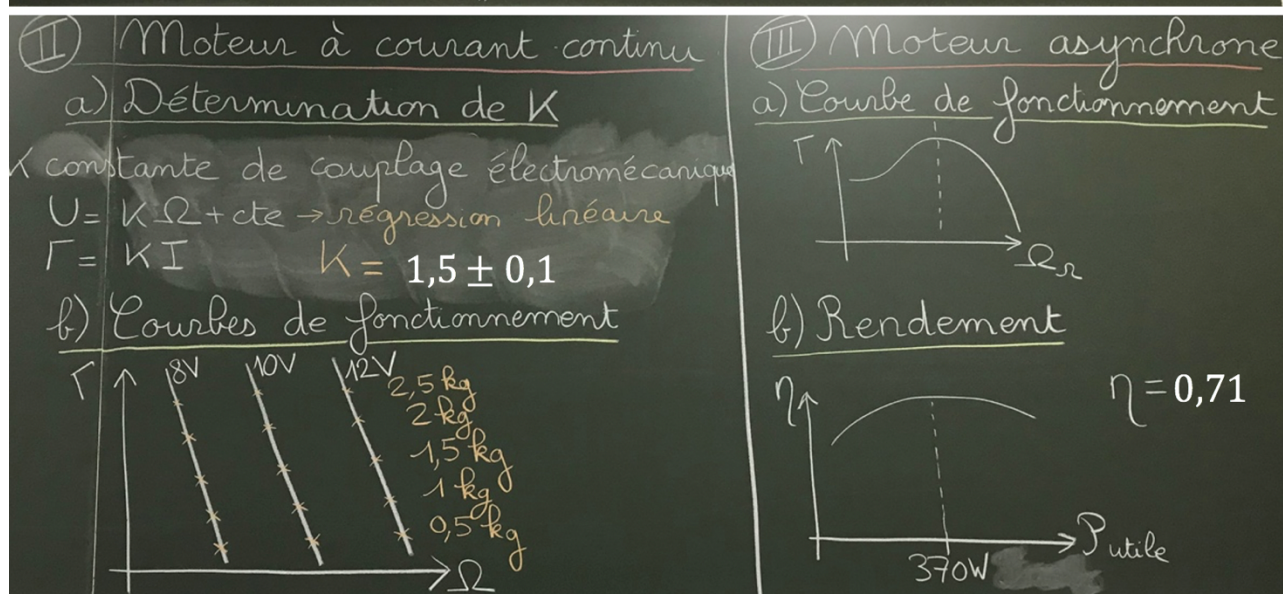 II Moteur à courant continu
a) Détermination de K
K constante de couplage électromécanique
U = KΩ + cte → régression linéaire
Γ = KI K = 1,5 ± 0,1
b) Courbes de fonctionnement
Γ 8V 10V 12V
2,5 kg
2 kg
1,5 kg
1 kg
0,5 kg
Ω
III Moteur asynchrone
a) Courbe de fonctionnement
Γ
Ω
b) Rendement
η η = 0,71
370W
Putile